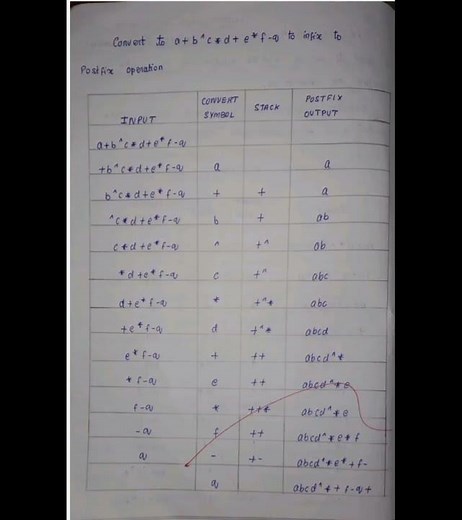 Convert to a+b^c*d+e*f-g to infix to
Postfix operation
INPUT CONVERT SYMBOL STACK POSTFIX OUTPUT
a+b^c*d+e*f-g
+b^c*d+e*f-g a a
b^c*d+e*f-g + + a
^c*d+e*f-g b + ab
c*d+e*f-g ^ +^ ab
*d+e*f-g c +^ abc
d+e*f-g * +^* abc
+e*f-g d +^* abcd
e*f-g + ++ abcd^*
*f-g e ++ abcd^*e
f-g * ++* abcd^*e
-g f ++ abcd^*e*f
g - +- abcd^*e*+f-
g abcd^*++f-g+